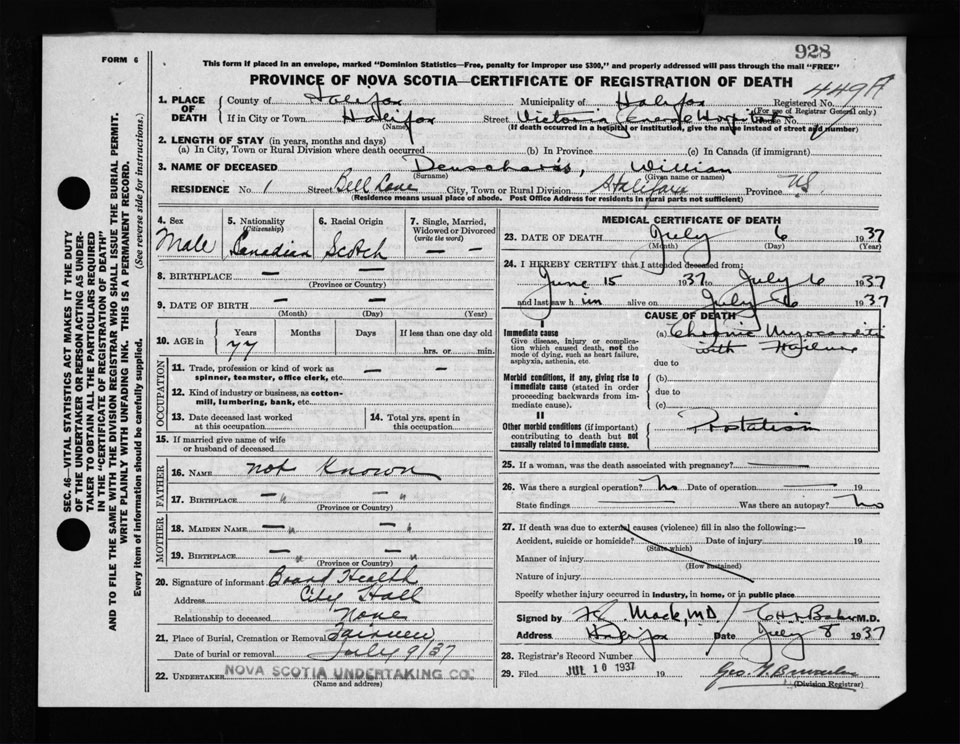 928
FORM 6
This form if placed in an envelope, marked "Dominion Statistics—Free, penalty for improper use $300," and properly addressed will pass through the mail "FREE"
PROVINCE OF NOVA SCOTIA—CERTIFICATE OF REGISTRATION OF DEATH
449A
1. PLACE OF DEATH
County of Halifax Municipality of Halifax Registered No.
(For use of Registrar General only)
If in City or Town Halifax Street Victoria General Hospital House No.
(Name) (If death occurred in a hospital or institution, give the name instead of street and number)
2. LENGTH OF STAY (in years, months and days)
(a) In City, Town or Rural Division where death occurred (b) In Province (c) In Canada (if immigrant)
3. NAME OF DECEASED William
(Surname) (Given name or names)
RESIDENCE No 1 Street Bell Lane City, Town or Rural Division Halifax Province NS
(Residence means usual place of abode. Post Office Address for residents in rural parts not sufficient)
4. Sex
Male
5. Nationality
(Citizenship)
Canadian
6. Racial Origin
Scotch
7. Single, Married, Widowed or Divorced
(write the word)
— —
8. BIRTHPLACE — —
(Province or Country)
9. DATE OF BIRTH — —
(Month) (Day) (Year)
10. AGE in
Years Months Days If less than one day old
77 hrs. or min.
OCCUPATION
11. Trade, profession or kind of work as spinner, teamster, office clerk, etc. — —
12. Kind of industry or business, as cotton-mill, lumbering, bank, etc.
13. Date deceased last worked at this occupation
14. Total yrs. spent in this occupation
15. If married give name of wife or husband of deceased
FATHER
16. NAME not Known
17. BIRTHPLACE — " — "
(Province or Country)
MOTHER
18. MAIDEN NAME — " — "
19. BIRTHPLACE — " — "
(Province or Country)
20. Signature of informant Board Health
Address City Hall
Relationship to deceased None
21. Place of Burial, Cremation or Removal Fairview
Date of burial or removal July 9/37
22. UNDERTAKER NOVA SCOTIA UNDERTAKING CO.
(Name and address)
MEDICAL CERTIFICATE OF DEATH
23. DATE OF DEATH July 6 1937
(Month) (Day) (Year)
24. I HEREBY CERTIFY that I attended deceased from:
June 15 1937 to July 6 1937
and last saw him alive on July 6 1937
CAUSE OF DEATH
I
Immediate cause
Give disease, injury or complication which caused death, not the mode of dying, such as heart failure, asphyxia, asthenia, etc.
(a) Chronic Myocarditis
with
due to
Morbid conditions, if any, giving rise to immediate cause (stated in order proceeding backwards from immediate cause).
(b)
due to
(c)
II
Other morbid conditions (if important) contributing to death but not causally related to immediate cause.
25. If a woman, was the death associated with pregnancy? —
26. Was there a surgical operation? No Date of operation — 19
State findings Was there an autopsy? No
27. If death was due to external causes (violence) fill in also the following:—
Accident, suicide or homicide? Date of injury 19
(State which)
Manner of injury
(How sustained)
Nature of injury
Specify whether injury occurred in industry, in home, or in public place
Signed by Mack, M.D. / M.D.
Address Halifax Date July 8 1937
28. Registrar's Record Number
29. Filed JUL 10 1937 19
(Division Registrar)
SEC. 46—VITAL STATISTICS ACT MAKES IT THE DUTY
OF THE UNDERTAKER OR PERSON ACTING AS UNDER-
TAKER TO OBTAIN ALL THE PARTICULARS REQUIRED
IN THE "CERTIFICATE OF REGISTRATION OF DEATH"
AND TO FILE THE SAME WITH THE DIVISION REGISTRAR WHO SHALL ISSUE THE BURIAL PERMIT.
WRITE PLAINLY WITH UNFADING INK. THIS IS A PERMANENT RECORD.
Every item of information should be carefully supplied. (See reverse side for instructions.)